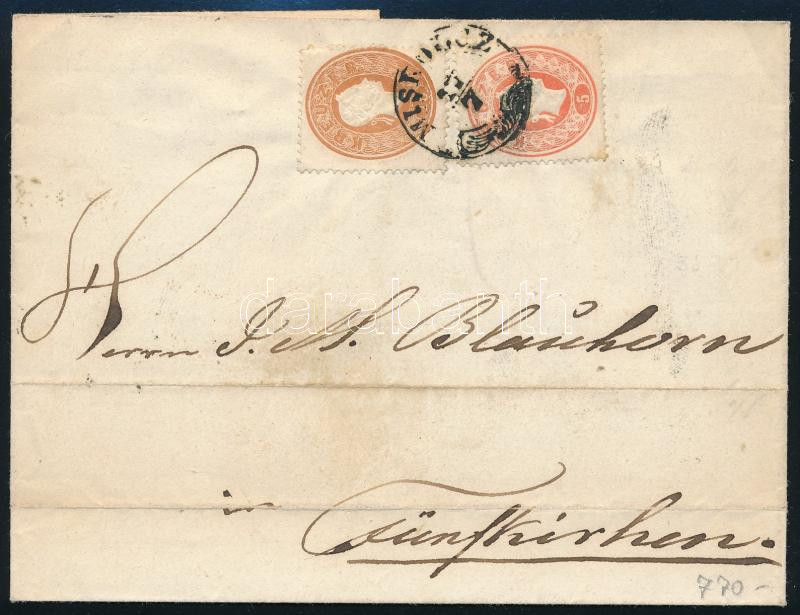 MISKOLCZ
5
Herrn J. M. Blauhorn
in
Fünfkirhen.
770-
darabanth